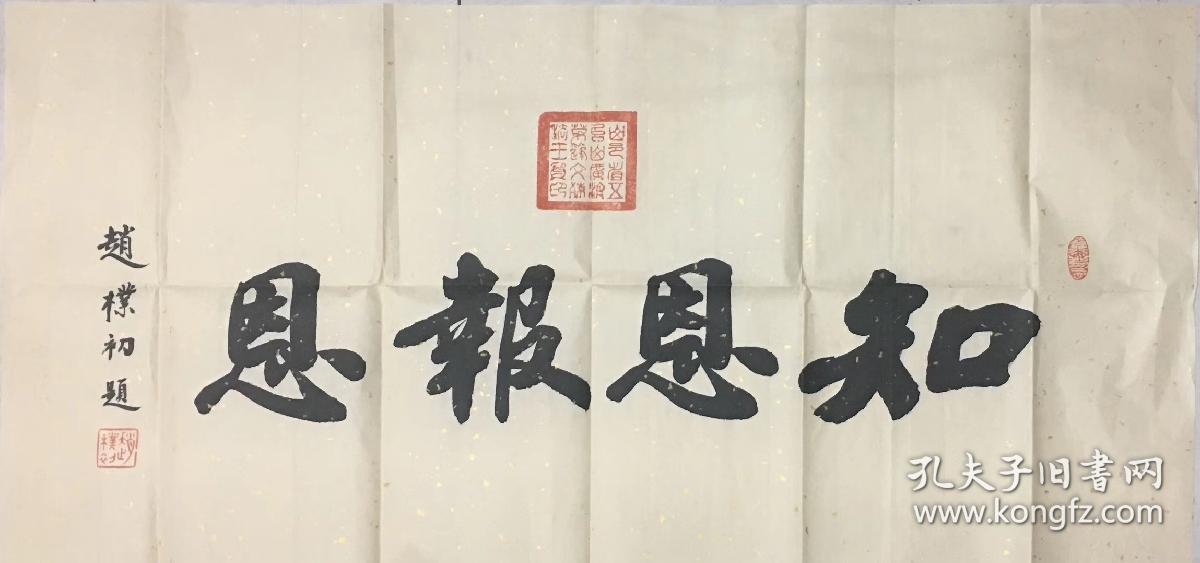 知恩報恩
趙樸初題
孔夫子旧书网
www.kongfz.com